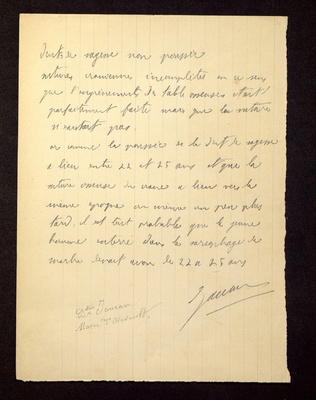 Dents de sagesse non poussées
sutures craniennes incomplètes en ce sens
que l'engrènement des tables osseuses était
parfaitement faite mais que les sutures
n'existait pas.
or comme la poussée de la dent de sagesse
a lieu entre 22 et 25 ans et que la
suture osseuse du crane a lieu vers la
même époque ou même un peu plus
tard, il est tout probable que le jeune
homme enterré dans le sarcophage de
marbre devait avoir de 22 a 25 ans